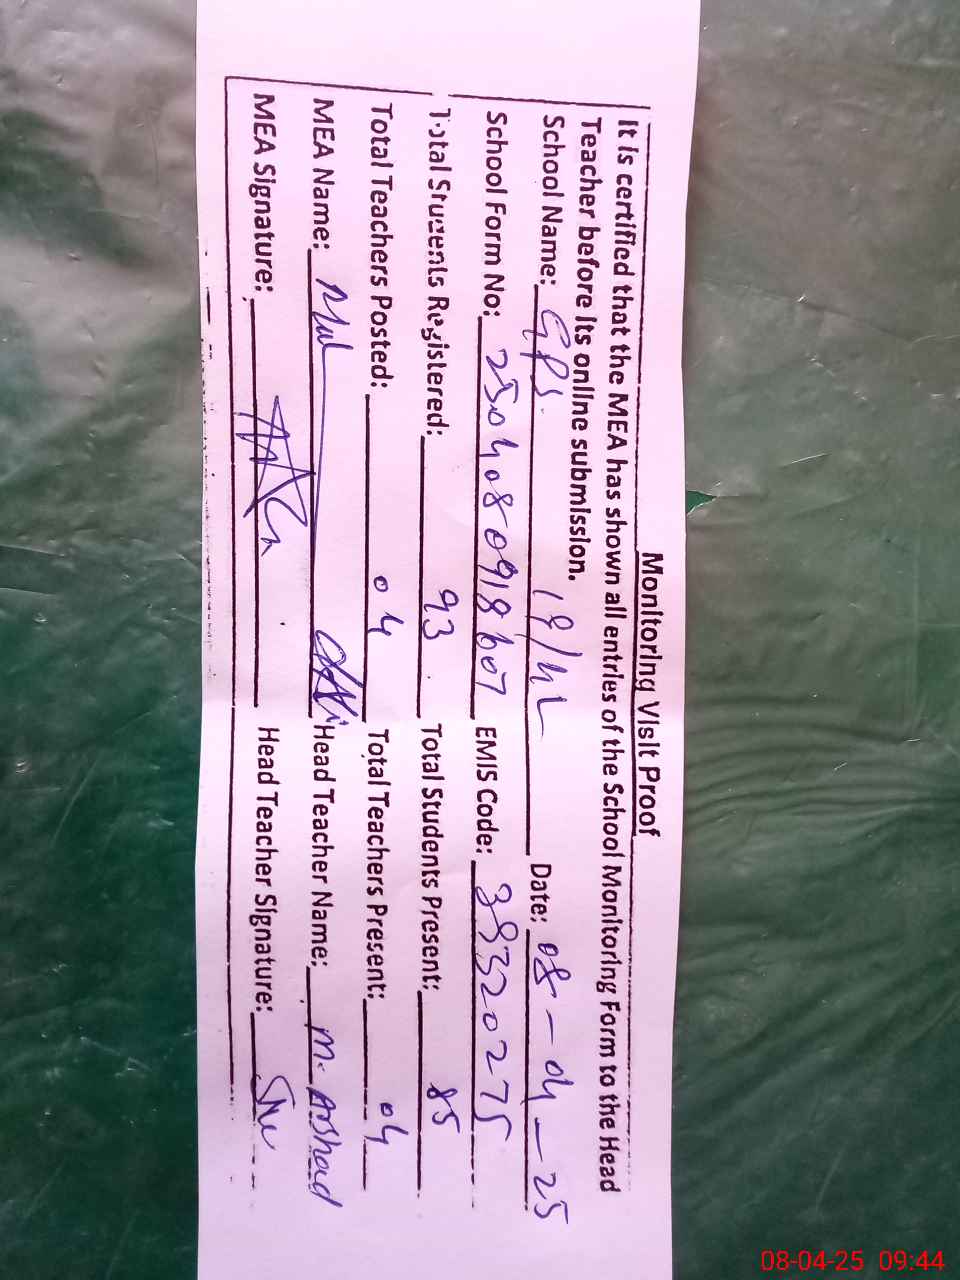 Monitoring Visit Proof
It is certified that the MEA has shown all entries of the School Monitoring Form to the Head
Teacher before its online submission.
School Name: GPS. 18/hL Date: 08-04-25
School Form No: 2504080918607 EMIS Code: 38320275
Total Students Registered: 93 Total Students Present: 85
Total Teachers Posted: 04 Total Teachers Present: 04
MEA Name: Head Teacher Name: M. Arshad
MEA Signature: Head Teacher Signature:
08-04-25 09:44